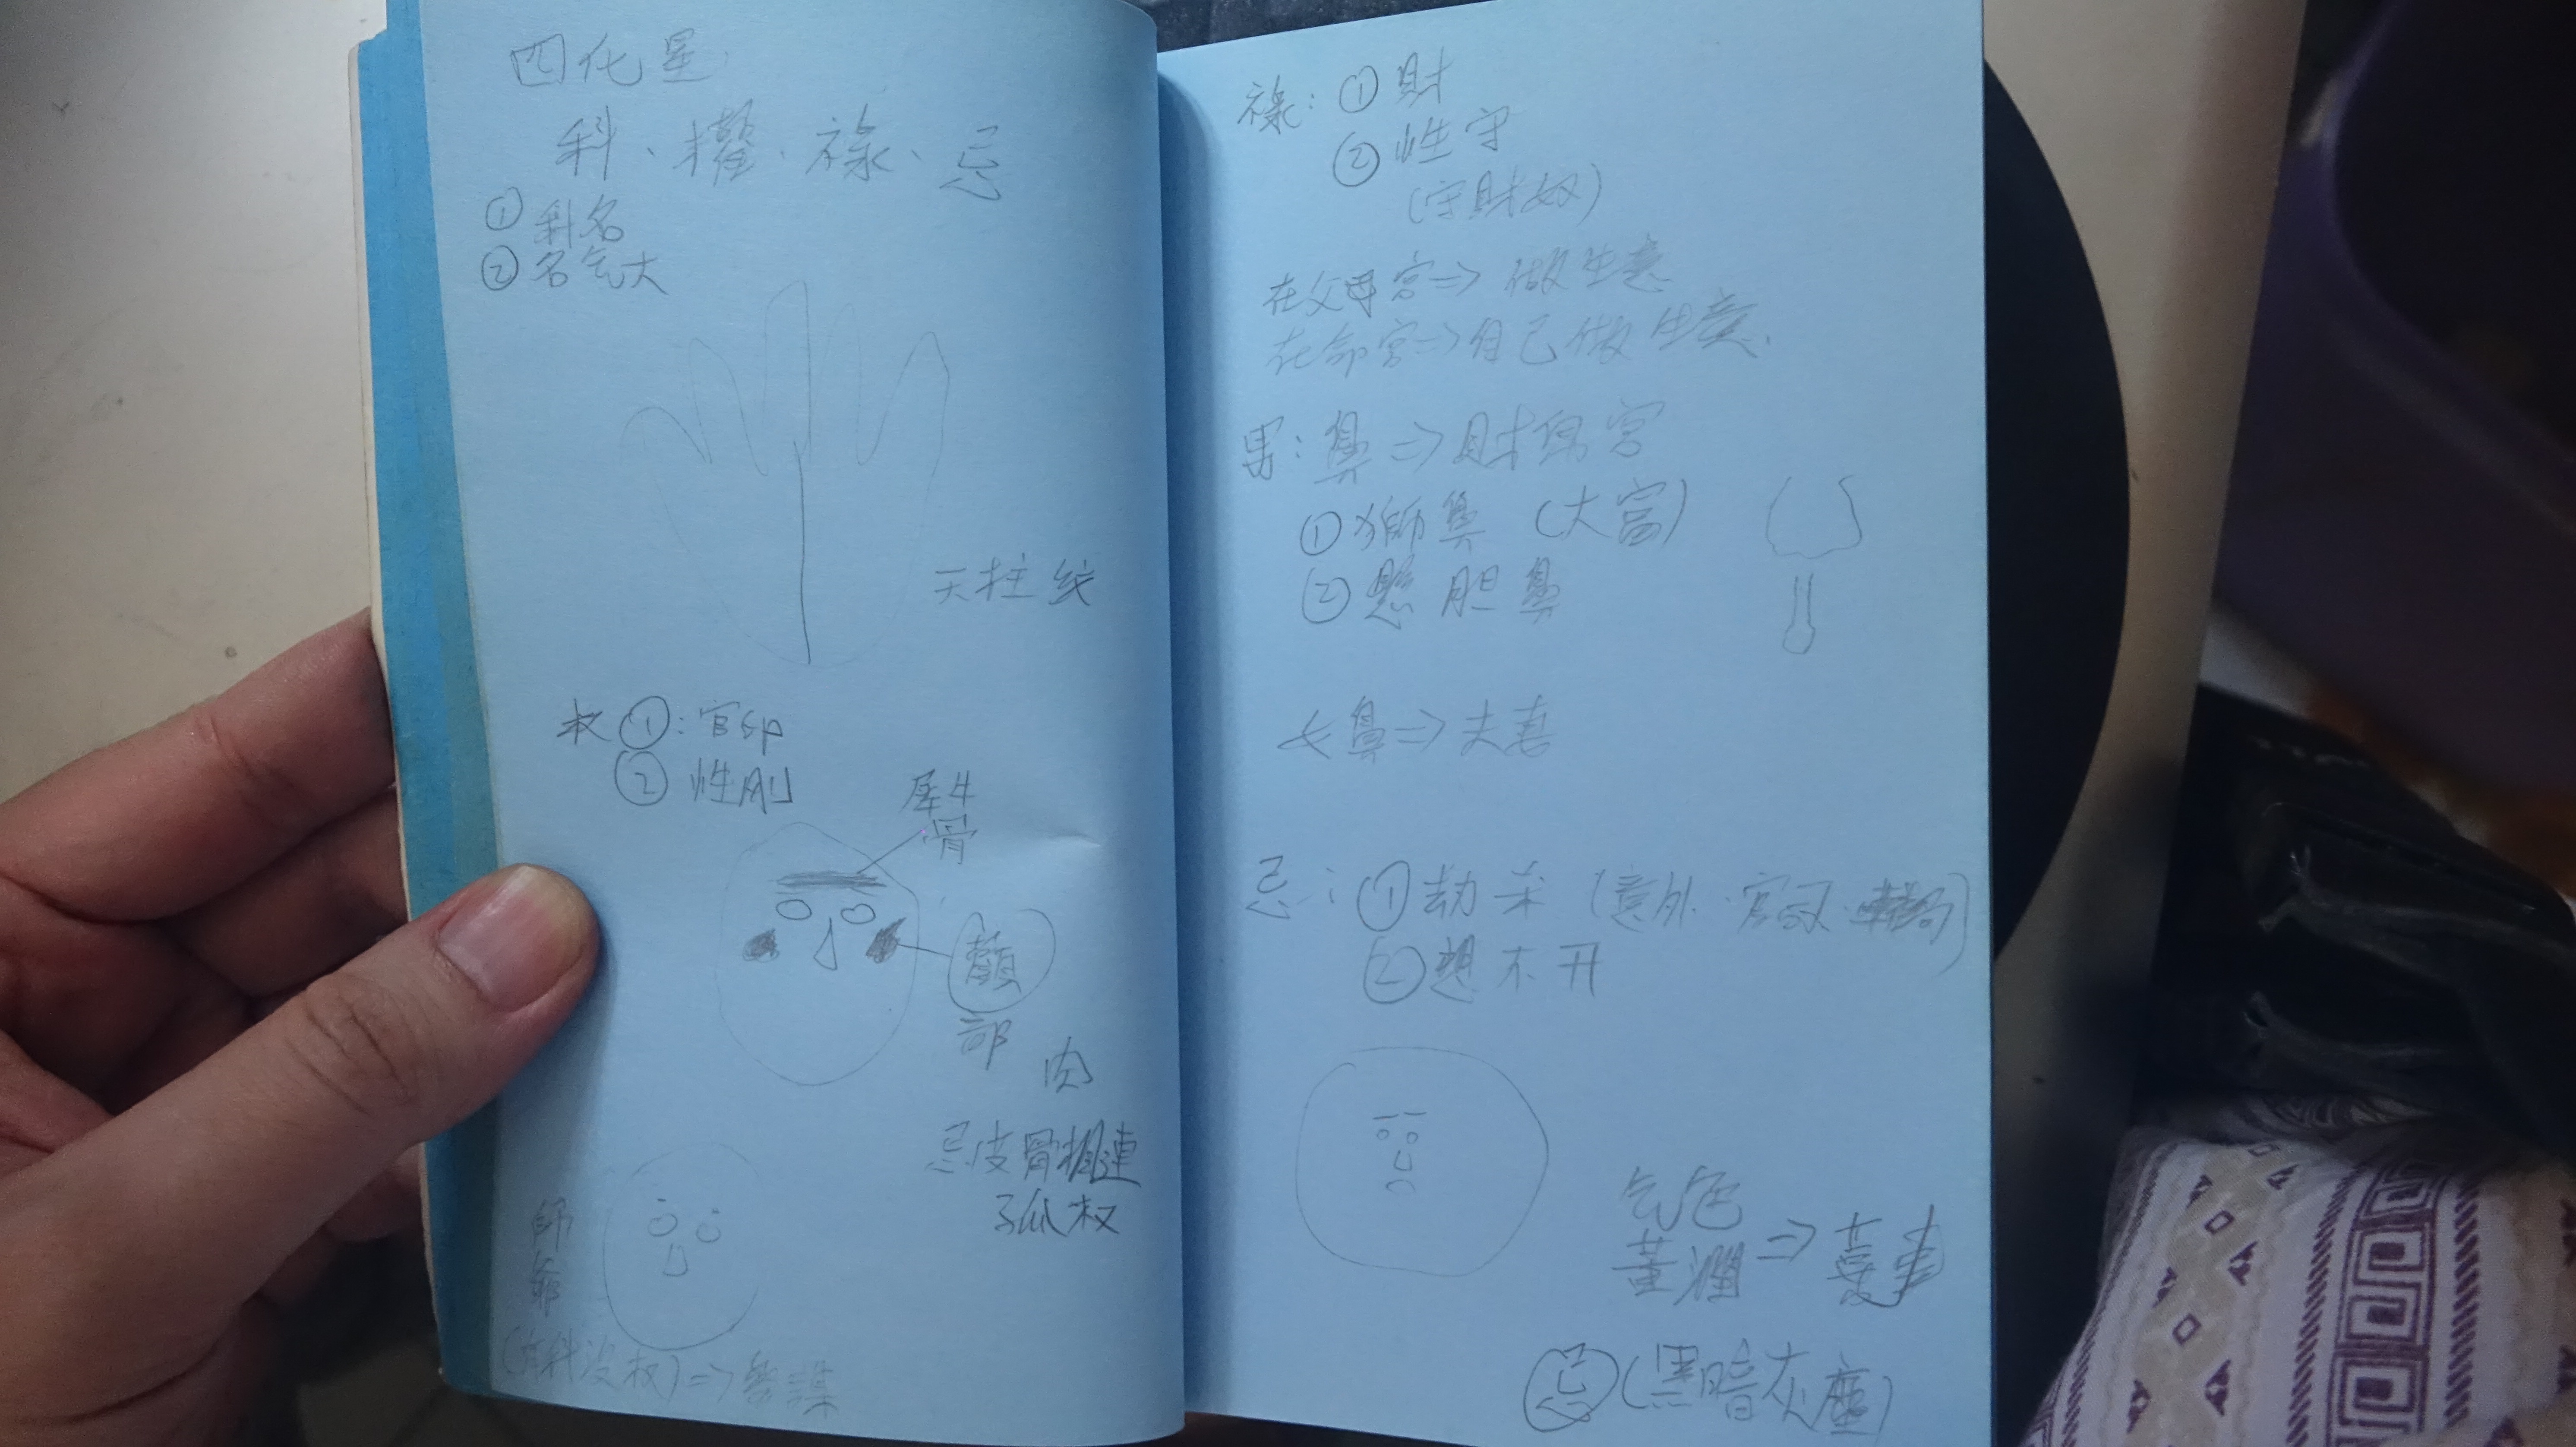 四化星
科、權、祿、忌
① 科名
② 名气大
天柱纹
权①：官印
② 性刚
犀牛
骨
顴
部
肉
忌皮骨相連
孤权
師
爺
(有科没权)=>參謀
祿：① 財
② 性守
(守財奴)
在父母宮=>做生意
在命宮=>自己做生意.
男：鼻=>財帛宮
① 獅鼻 (大富)
② 懸胆鼻
女鼻=>夫妻
忌：① 劫杀 (意外.官司.
② 想不开
气色
黃潤=>喜事
忌(黑暗灰塵)